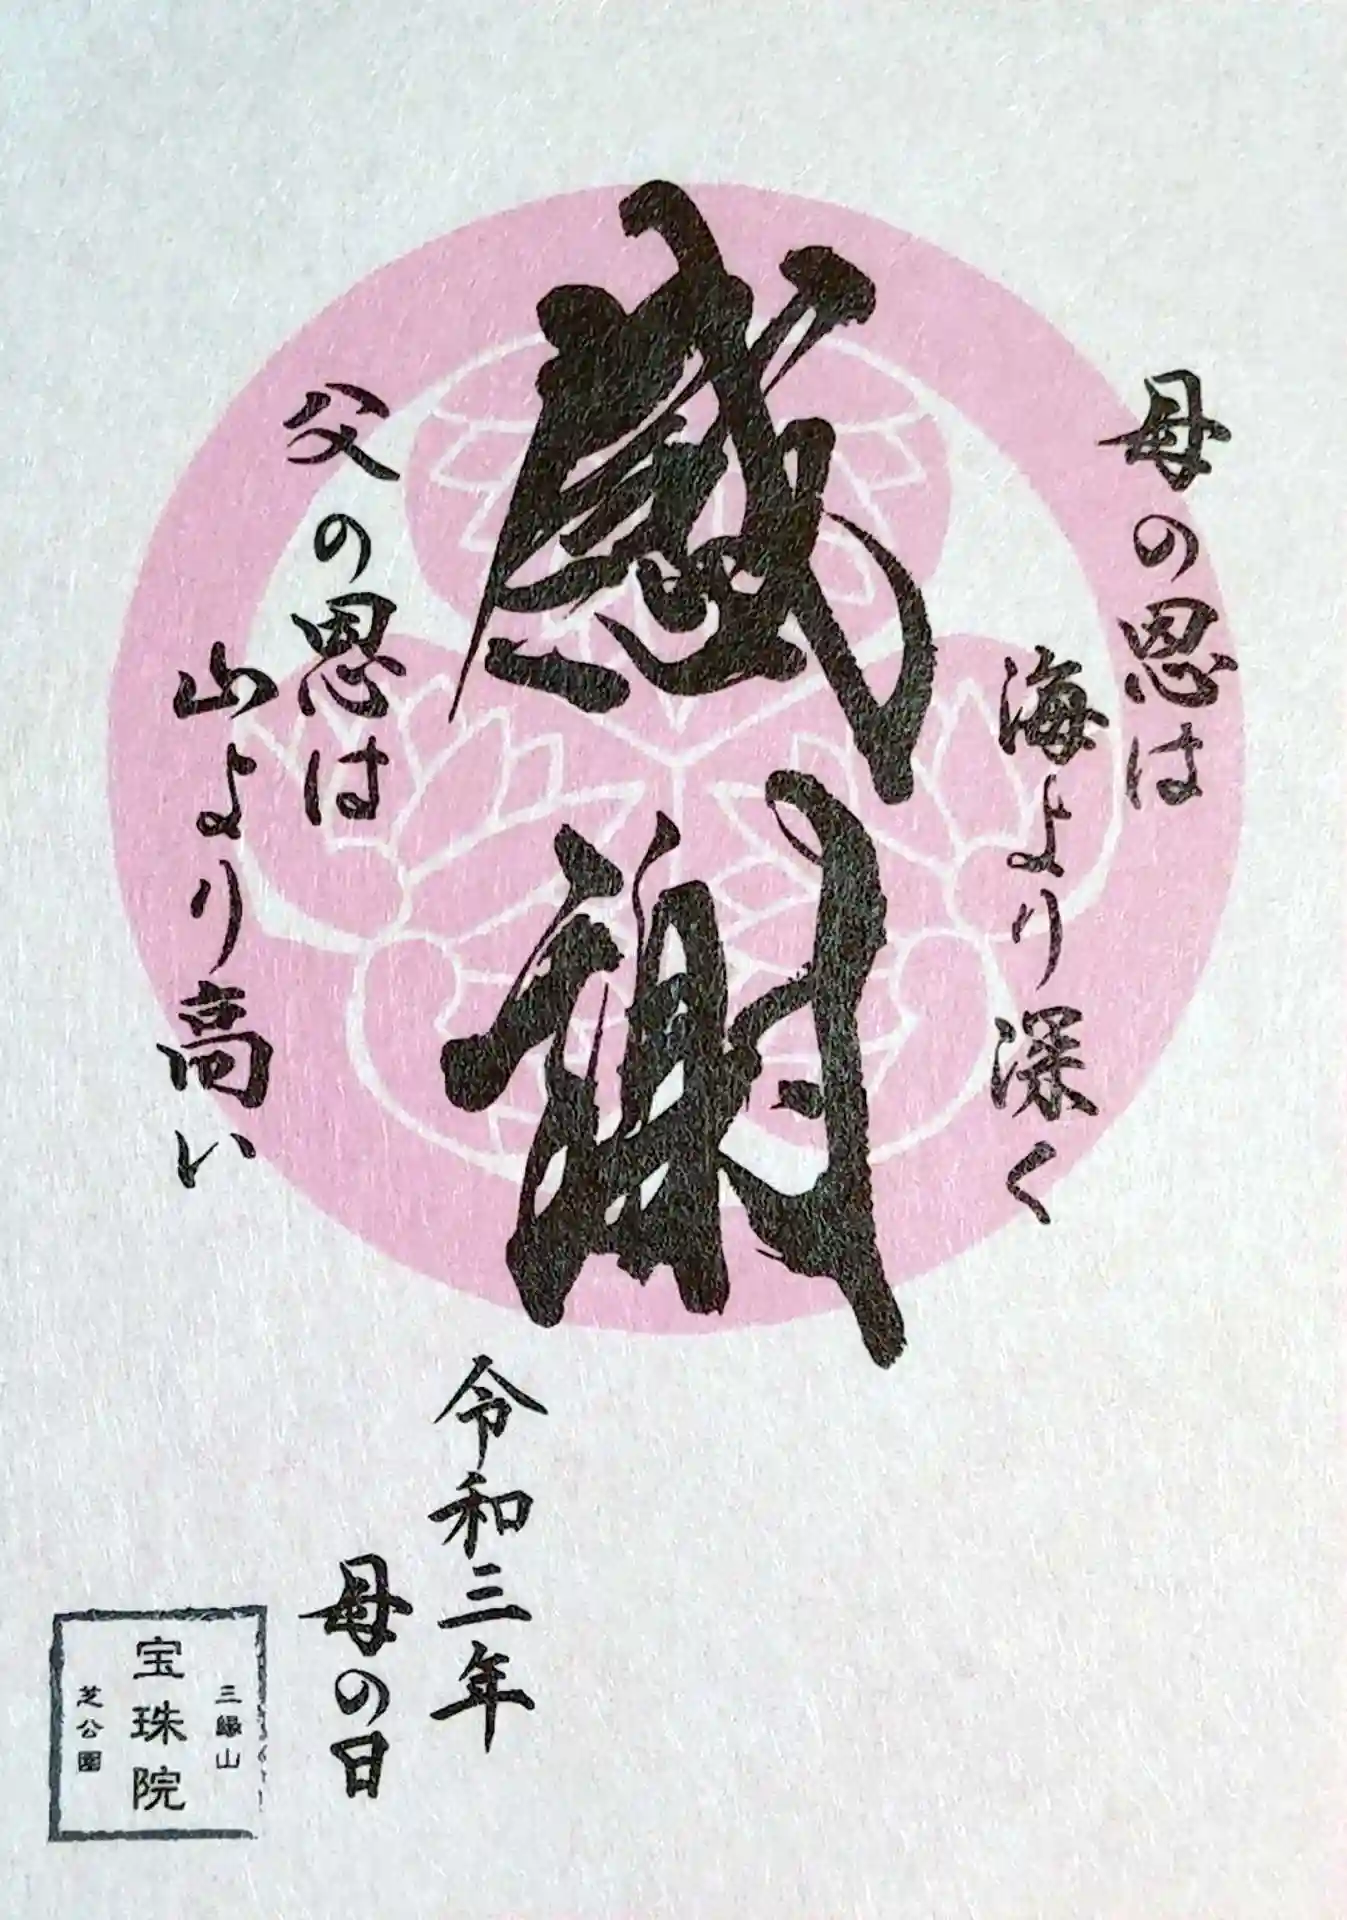 母の恩は
海より深く
感謝
父の恩は
山より高い
令和三年
母の日
三縁山
宝珠院
芝公園